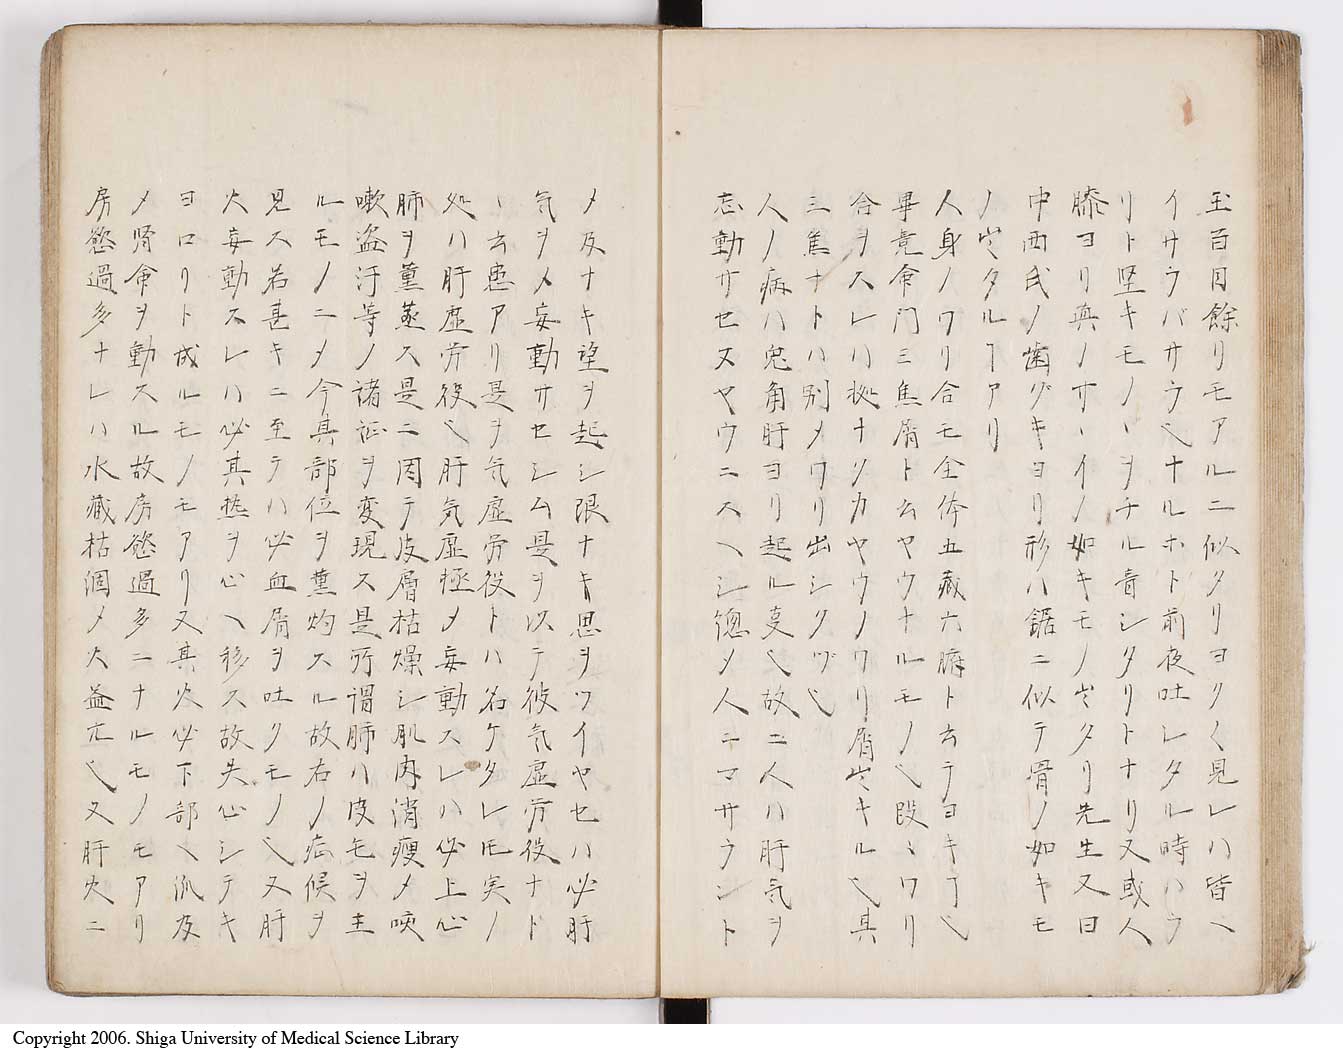 玉百目餘リモアルニ似タリヨク〱見レハ皆ヘ
イサラバサラ也ナルホト前夜吐シタル時ハラ
リト堅キモノヽヲチル音シタリトナリ又或人
膝ヨリ真ノサヽイノ如キモノ出タリ先生又曰
中西氏ノ歯グキヨリ形ハ鋸ニ似テ骨ノ如キモ
ノ出タルヿアリ
人身ノワリ合モ全体五藏六腑ト云テヨキヿ也
畢竟命門三焦屑ト云ヤウナルモノ也段〻ワリ
合ヲスレハ拠ナクカヤウノワリ屑出キル也其
三焦ナトハ別メワリ出シクヅ也
人ノ病ハ兎角肝ヨリ起ル㕝也故ニ人ハ肝気ヲ
忘動サセヌヤウニスヘシ惣メ人ニマサラント
メ及ナキ望ヲ起シ限ナキ思ヲツイヤセハ必肝
気ヲメ妄動サセシム是ヲ以テ彼気虚労役ナド
ヽ云患アリ是ヲ気虚労役トハ名ケタレ𪜈実ノ
処ハ肝虚労役也肝気虚極メ妄動スレハ必上心
肺ヲ薫蒸ス是ニ因テ皮層枯燥シ肌肉消瘦メ咳
嗽盗汗等ノ諸証ヲ変現ス是所謂肺ハ皮毛ヲ主
ルモノニメ今其部位ヲ薫灼スル故右ノ症候ヲ
見ス若甚キニ至テハ必血屑ヲ吐クモノ也又肝
火妄動スレハ必其熱ヲ心ヘ移ス故失心シテキ
ヨロリト成ルモノモアリ又其火必下部ヘ派及
メ腎命ヲ動スル故房慾過多ニナルモノモアリ
房慾過多ナレハ水藏枯涸メ火益亢也又肝火ニ